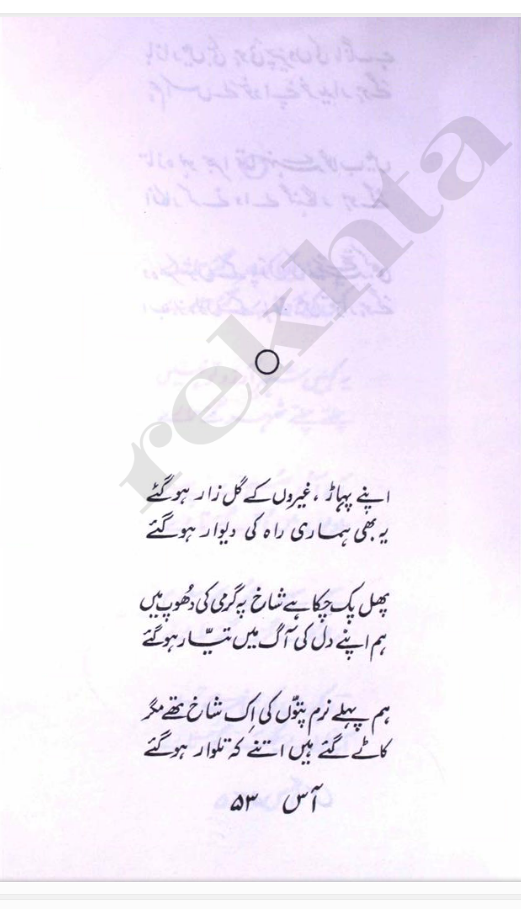 rekhta
اپنے پہاڑ ، غیروں کے گل زار ہوگئے
یہ بھی ہماری راہ کی دیوار ہوگئے
پھل پک چکا ہے شاخ پہ گرمی کی دُھوپ میں
ہم اپنے دل کی آگ میں تیّار ہوگئے
ہم پہلے نرم پتّوں کی اِک شاخ تھے مگر
کاٹے گئے ہیں اتنے کہ تلوار ہوگئے
آس ۵۳